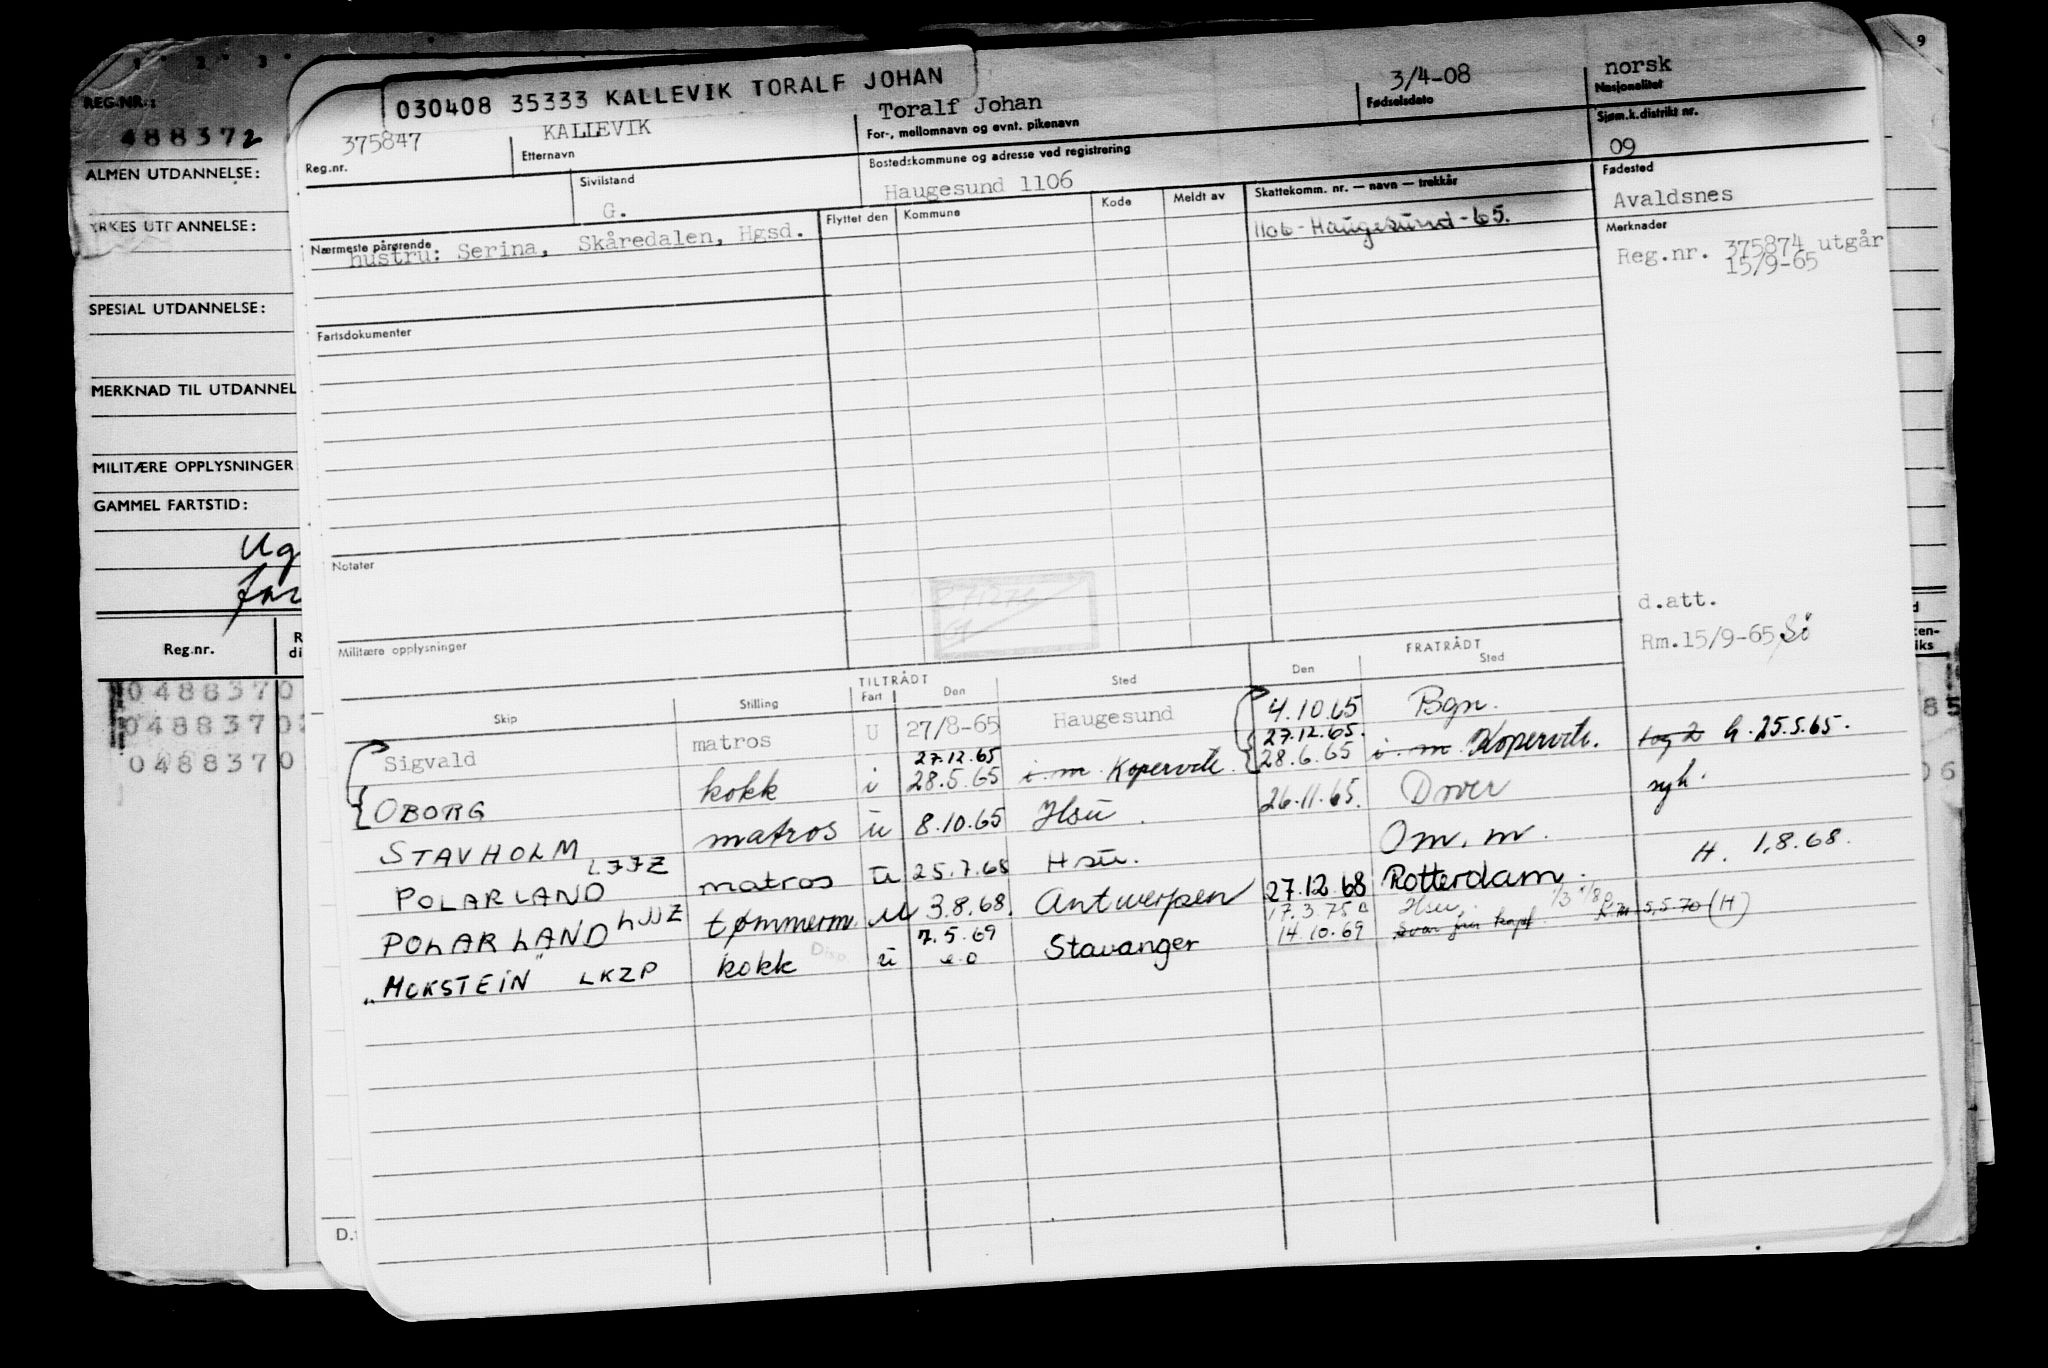 030408 35333 KALLEVIK TORALF JOHAN
375847 KALLEVIK Toralf Johan 3/4-08 norsk
Reg.nr. Etternavn For-, mellomnavn og evnt. pikenavn Fødselsdato Nasjonalitet
Sivilstand Bostedskommune og adresse ved registrering Sjøm.k.distrikt nr.
G. Haugesund 1106 09
Nærmeste pårørende Flyttet den Kommune Kode Meldt av Skattekomm. nr. — navn — trekkår Fødested
hustru: Serina, Skåredalen, Hgsd. 1106 - Haugesund - 65. Avaldsnes
Merknader
Reg.nr. 375874 utgår
15/9-65
Fartsdokumenter
Notater
d.att.
Militære opplysninger Rm.15/9-65
TILTRÅDT FRATRÅDT
Skip Stilling Fart Den Sted Den Sted
Sigvald matros U 27/8-65 Haugesund 4.10.65 Bgn.
27.12.65 27.12.65.
OBORG kokk i 28.5.65 i. m. Kopervik 28.6.65 i. m. Kopervik. h. 25.5.65.
STAVHOLM matros u 8.10.65 Hsu. 26.11.65. Dover syk.
POLARLAND LJJZ matros u 25.7.68 Hsu. Om. m. H. 1.8.68.
POLARLAND LJJZ tømmerm. u 3.8.68. Antwerpen 27.12.68 Rotterdam.
7.5.69 17.3.75 Hsu.
"MOKSTEIN" LKZP kokk Disp. u Stavanger 14.10.69 5.5.70 (H)
REG.NR.:
488372
ALMEN UTDANNELSE:
YRKES UTDANNELSE:
SPESIAL UTDANNELSE:
MERKNAD TIL UTDANNEL
MILITÆRE OPPLYSNINGER
GAMMEL FARTSTID:
Ug
for
Reg.nr. R
di
0488370
0488370
0488370
D.
9
d
ten-
iks
85
06